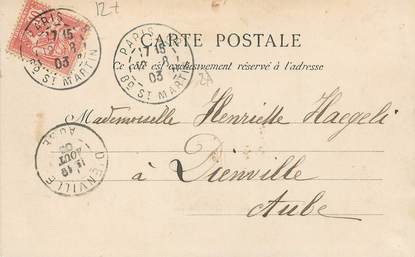 12+
PARIS
17 15
2 8
03
Bd ST MARTIN
PARIS
17 15
2 8
03
Bd ST MARTIN
CARTE POSTALE
Ce côté est exclusivement réservé à l'adresse
Mademoiselle Henriette Haegeli
à Dienville
Aube
DIENVILLE
AOUT
03
AUBE